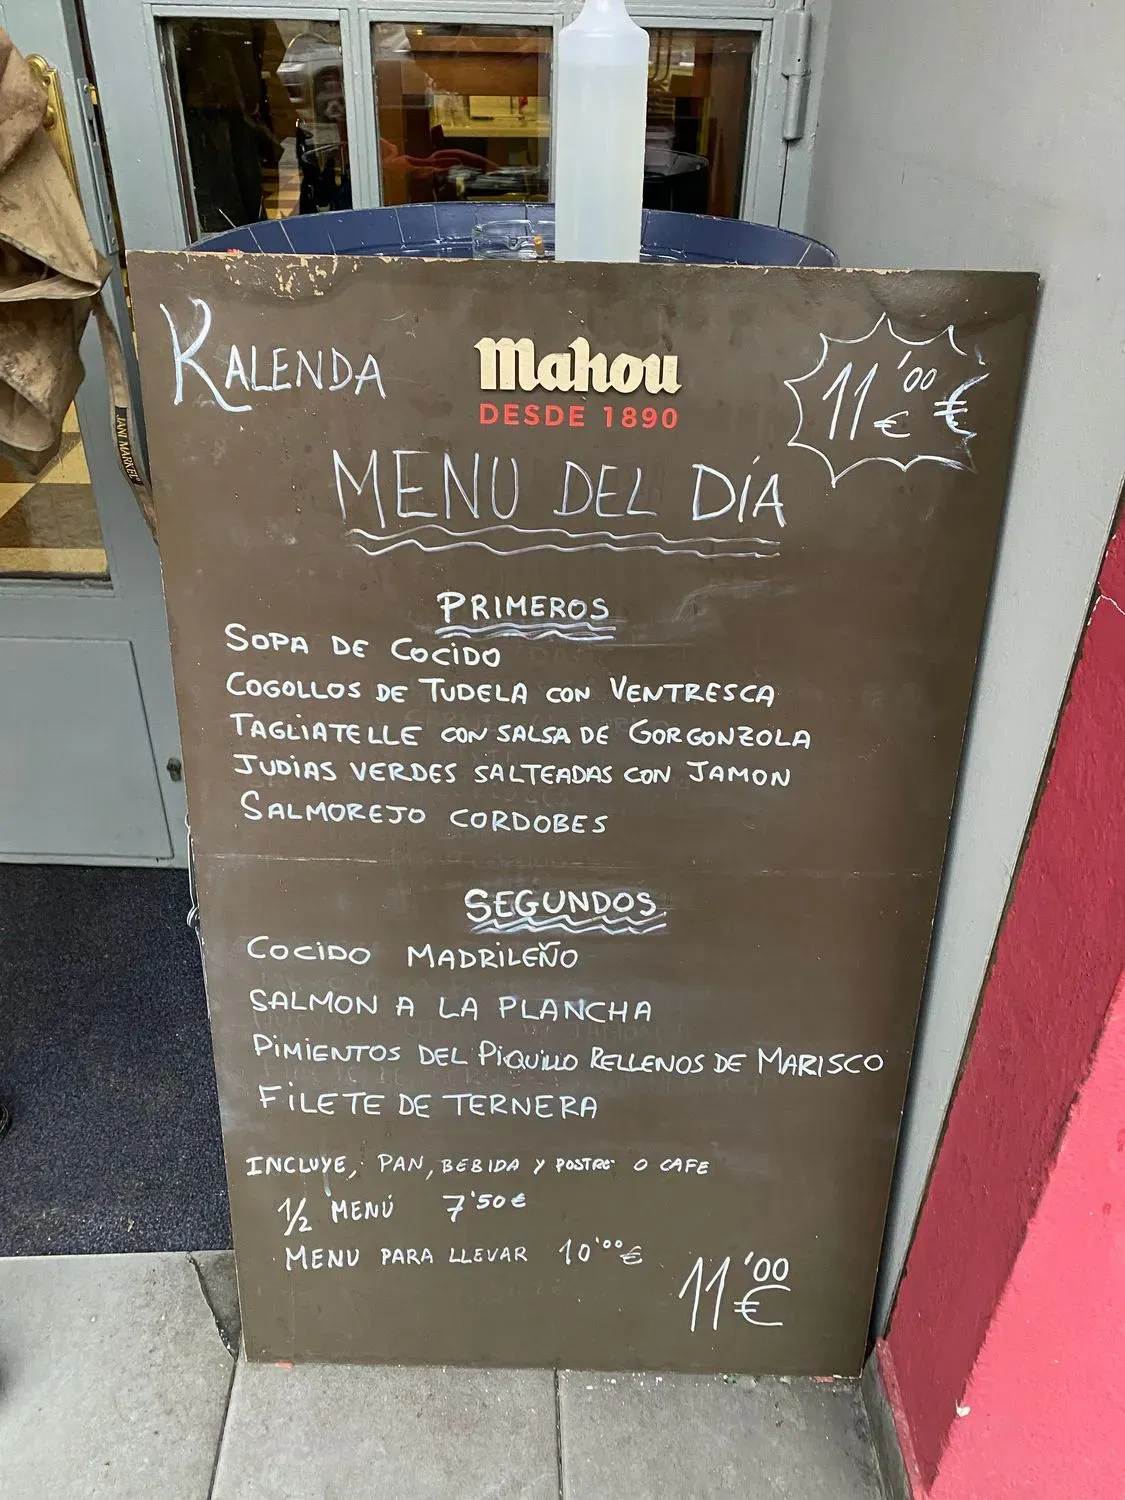 KALENDA
Mahou
DESDE 1890
11'00 € €
MENU DEL DÍA
PRIMEROS
SOPA DE COCIDO
COGOLLOS DE TUDELA CON VENTRESCA
TAGLIATELLE CON SALSA DE GORGONZOLA
JUDIAS VERDES SALTEADAS CON JAMON
SALMOREJO CORDOBES
SEGUNDOS
COCIDO MADRILEÑO
SALMON A LA PLANCHA
PIMIENTOS DEL PIQUILLO RELLENOS DE MARISCO
FILETE DE TERNERA
INCLUYE, PAN, BEBIDA Y POSTRE O CAFE
1/2 MENÚ 7'50€
MENU PARA LLEVAR 10'00€
11'00 €
JANI MARKEL